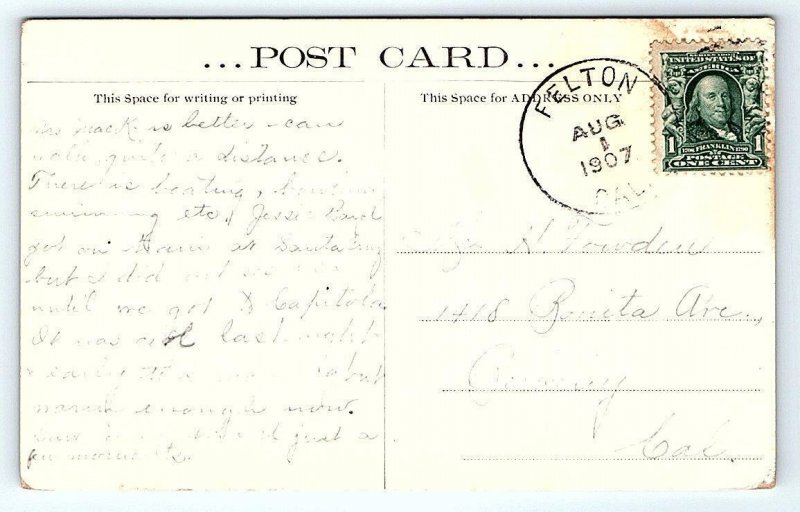 ...POST CARD...
This Space for writing or printing
This Space for ADDRESS ONLY
FELTON
AUG
1
1907
CAL.
SERIES 1902
UNITED STATES OF
AMERICA
1 1706 FRANKLIN 1790 1
POSTAGE
ONE CENT
Mack is better - can
walk quite a distance.
There is boating,
swimming etc. Jessie
got on train at Santa Cruz
but I did not see
until we got to Capitola
It was cool last night
early but
warm enough now.
just a
few moments.
H. Towden
1418 Bonita Ave.,
Cal.